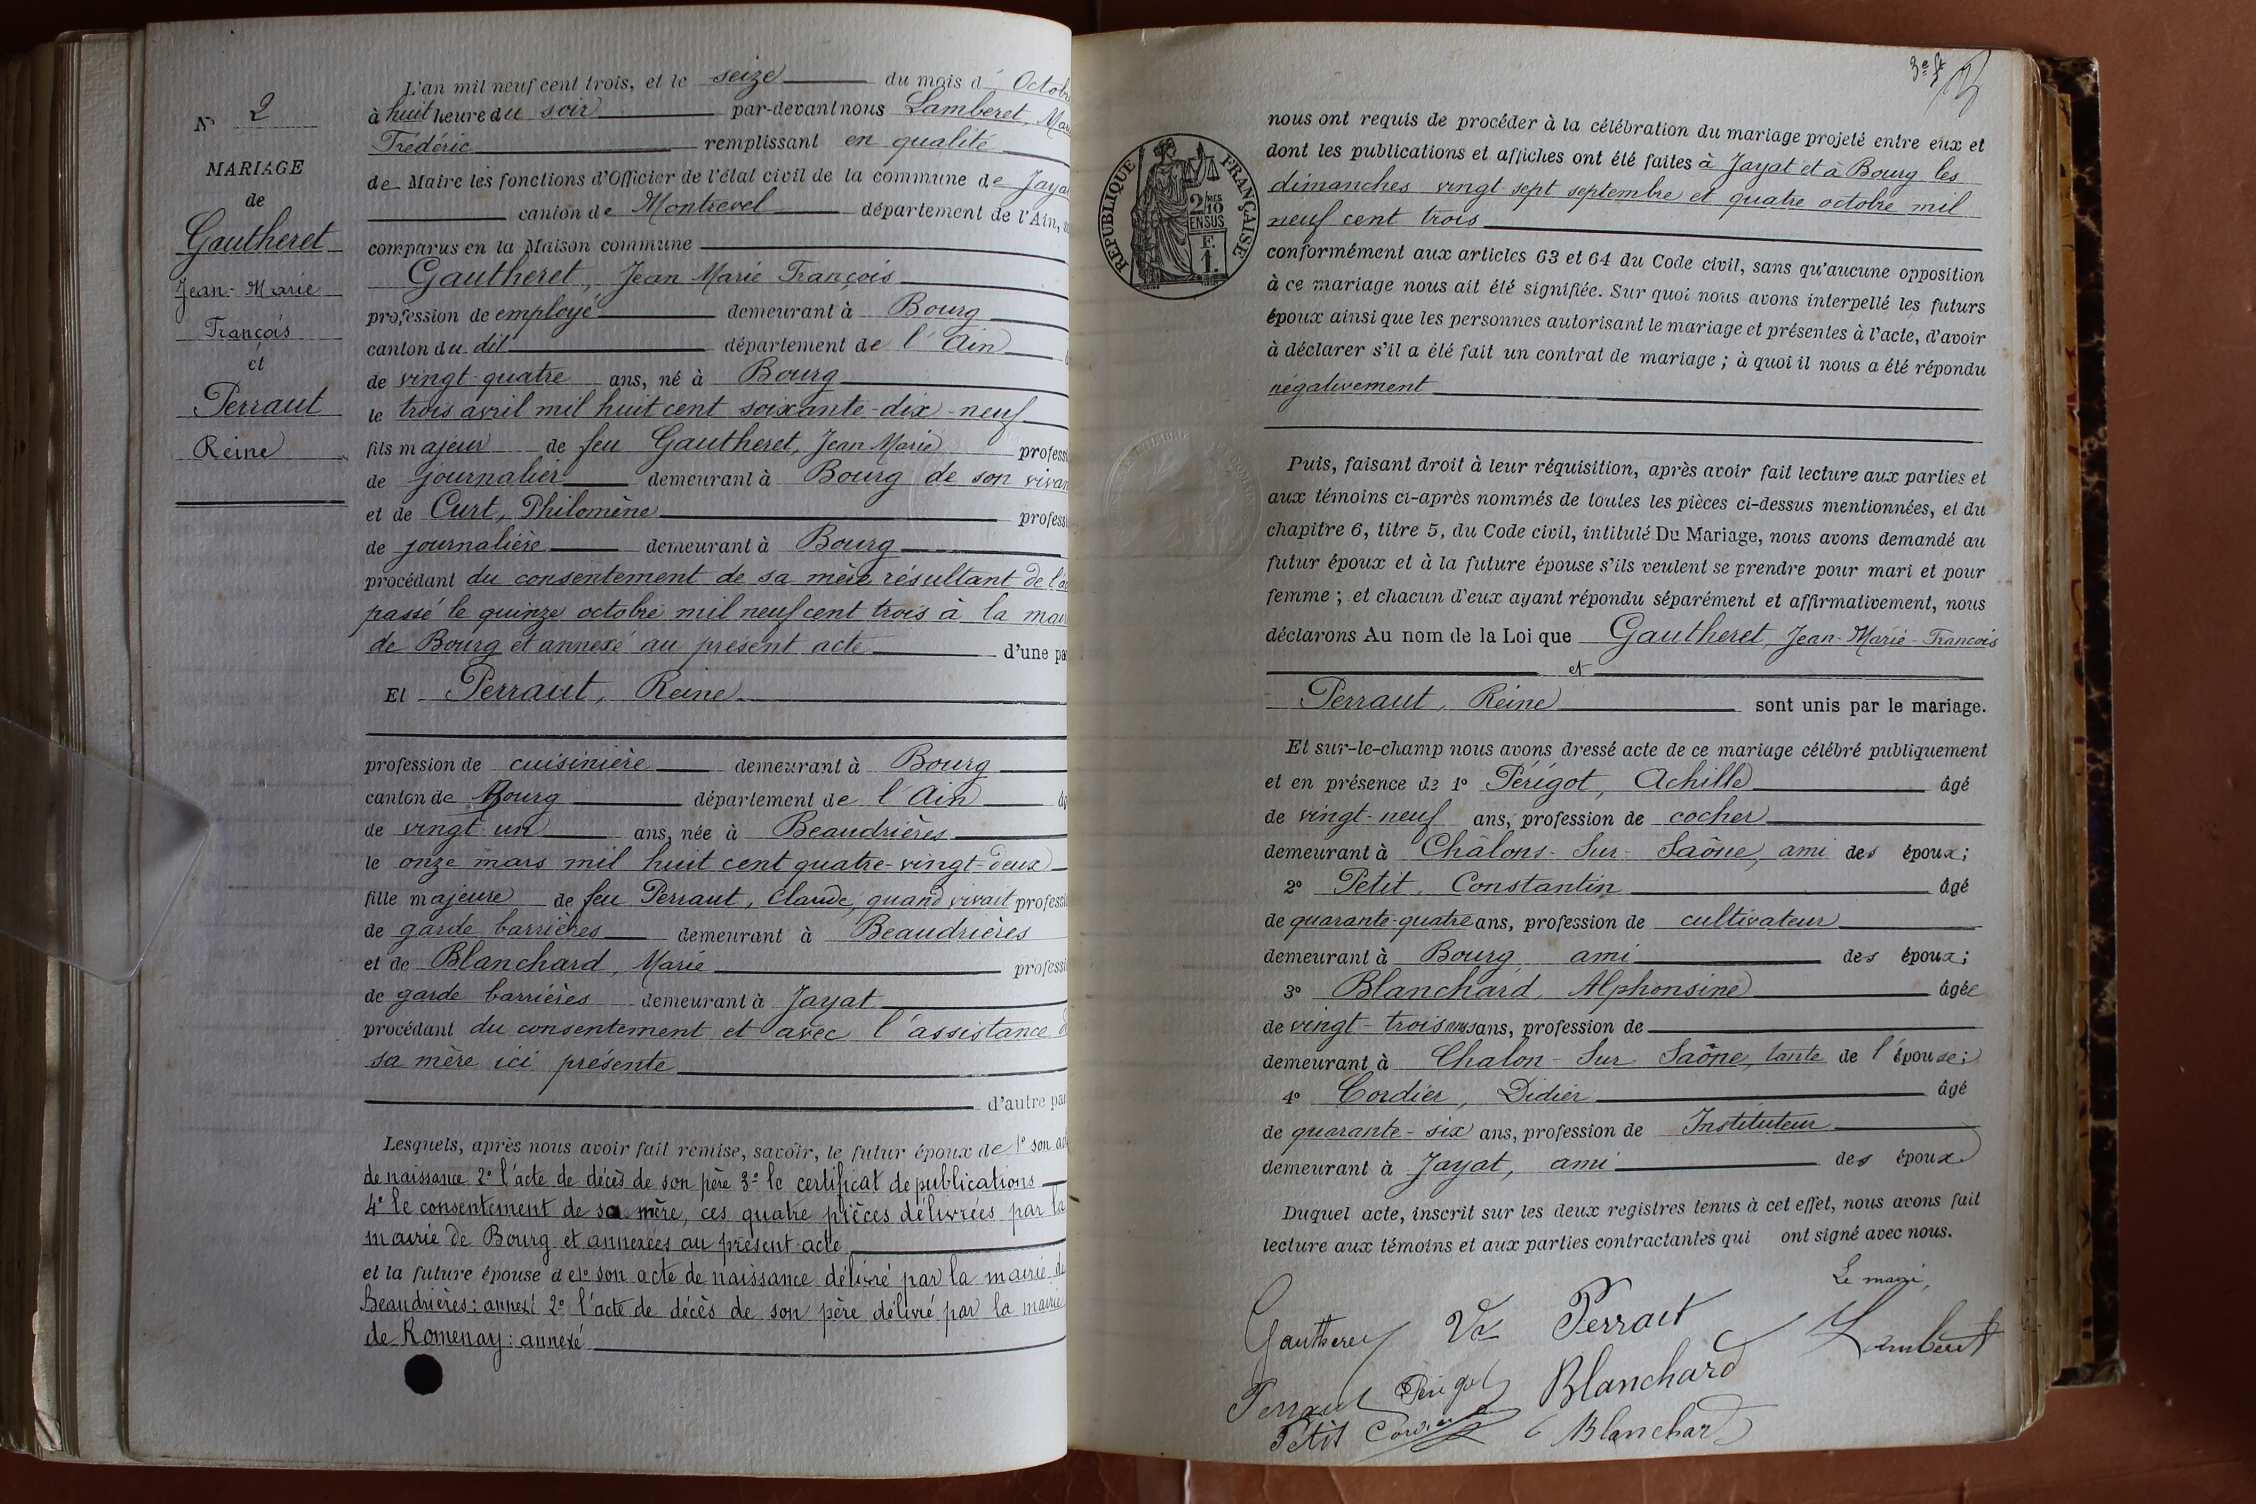 L'an mil neuf cent trois, et le seize du mois d' Octob
à huit heure du soir par-devant nous Lamberet, Ma
Frédéric remplissant en qualité
de Maire les fonctions d'Officier de l'état civil de la commune de Jaya
canton de Montrevel département de l'Ain,
comparus en la Maison commune
Gautheret, Jean Marie François
profession de employé demeurant à Bourg
canton du dit département de l'Ain
de vingt-quatre ans, né à Bourg
le trois avril mil huit cent soixante-dix-neuf
fils majeur de feu Gautheret, Jean Marie profess
de journalier demeurant à Bourg de son viva
et de Curt, Philomène profess
de journalière demeurant à Bourg
procédant du consentement de sa mère résultant de l'a
passé le quinze octobre mil neuf cent trois à la mai
de Bourg et annexé au présent acte d'une pa
Et Perraut, Reine
profession de cuisinière demeurant à Bourg
canton de Bourg département de l'Ain
de vingt-un ans, née à Beaudrières
le onze mars mil huit cent quatre-vingt-deux
fille majeure de feu Perraut, Claude, quand vivait professi
de garde barrières demeurant à Beaudrières
et de Blanchard, Marie professi
de garde barrières demeurant à Jayat
procédant du consentement et avec l'assistance d
sa mère ici présente
d'autre pa
Lesquels, après nous avoir fait remise, savoir, le futur époux de 1° son ac
de naissance 2° l'acte de décès de son père 3° le certificat de publications
4° le consentement de sa mère, ces quatre pièces délivrées par la
mairie de Bourg et annexées au présent acte
et la future épouse de 1° son acte de naissance délivré par la mairie de
Beaudrières: annexé 2° l'acte de décès de son père délivré par la mairie
de Romenay: annexé
N° 2
MARIAGE
de
Gautheret
Jean-Marie
François
et
Perraut
Reine
3e ft
nous ont requis de procéder à la célébration du mariage projeté entre eux et
dont les publications et affiches ont été faites à Jayat et à Bourg les
dimanches vingt-sept septembre et quatre octobre mil
neuf cent trois
conformément aux articles 63 et 64 du Code civil, sans qu'aucune opposition
à ce mariage nous ait été signifiée. Sur quoi nous avons interpellé les futurs
époux ainsi que les personnes autorisant le mariage et présentes à l'acte, d'avoir
à déclarer s'il a été fait un contrat de mariage ; à quoi il nous a été répondu
négativement
Puis, faisant droit à leur réquisition, après avoir fait lecture aux parties et
aux témoins ci-après nommés de toutes les pièces ci-dessus mentionnées, et du
chapitre 6, titre 5, du Code civil, intitulé Du Mariage, nous avons demandé au
futur époux et à la future épouse s'ils veulent se prendre pour mari et pour
femme ; et chacun d'eux ayant répondu séparément et affirmativement, nous
déclarons Au nom de la Loi que Gautheret, Jean-Marie-François
et
Perraut, Reine sont unis par le mariage.
Et sur-le-champ nous avons dressé acte de ce mariage célébré publiquement
et en présence de 1° Périgot, Achille âgé
de vingt-neuf ans, profession de cocher
demeurant à Châlons-Sur-Saône, ami des époux;
2° Petit Constantin âgé
de quarante-quatre ans, profession de cultivateur
demeurant à Bourg ami des époux;
3° Blanchard, Alphonsine âgée
de vingt-trois ans, profession de
demeurant à Chalon-Sur Saône, tante de l'épouse;
4° Cordier, Didier âgé
de quarante-six ans, profession de Instituteur
demeurant à Jayat, ami des époux
Duquel acte, inscrit sur les deux registres tenus à cet effet, nous avons fait
lecture aux témoins et aux parties contractantes qui ont signé avec nous.
Le maire,
Gautheret Vve Perraut Lamberet
Perraut Périgot Blanchard
Petit Cordier Blanchard
RÉPUBLIQUE FRANÇAISE
2/10
EN SUS
F.
1.